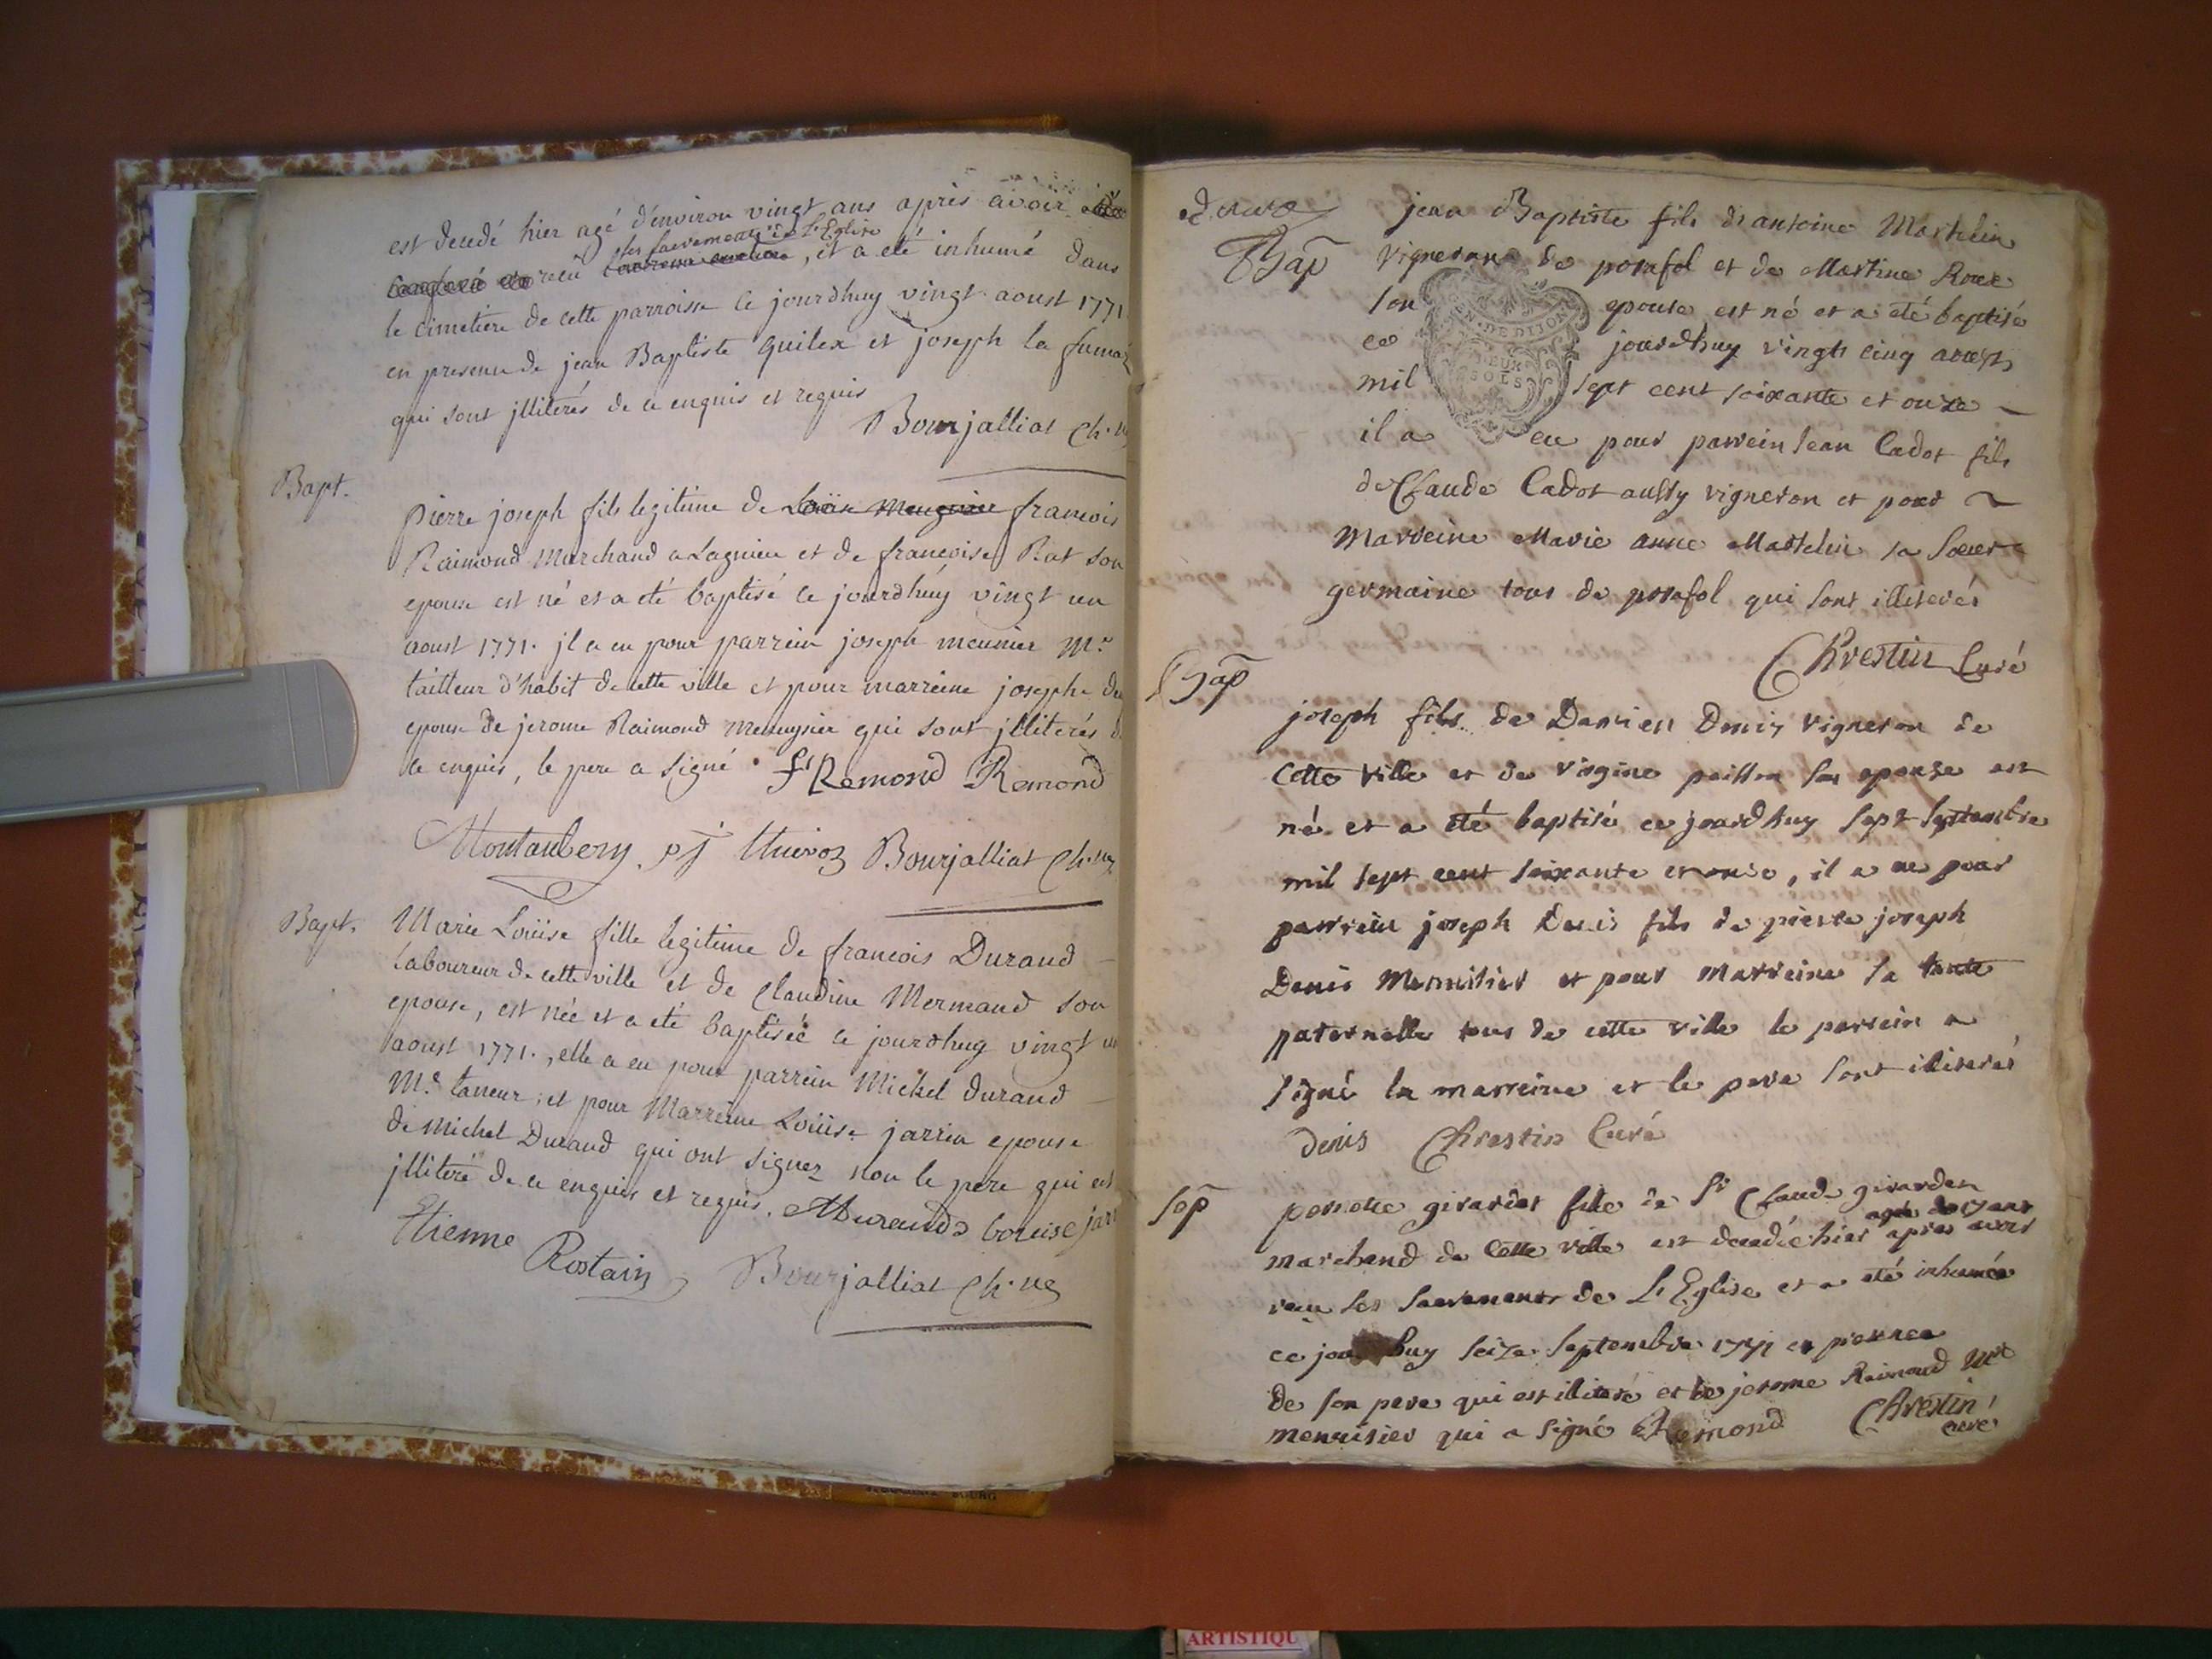 est decedé hier agé d'environ vingt ans après avoir
reçu les sacrements de L'Eglise, et a eté inhumé dans
le cimetiere de cette parroisse ce jourdhuy vingt aoust 1771
en presence de jean Baptiste Guilex et joseph la fumaz
qui sont jlliterés de ce enquis et requis
Bourjalliat Ch. ve
Bapt.
pierre joseph fils legitime de francois
Raimond Marchand a Lagnieu et de francoise Rat son
epouse est né et a eté baptisé ce jourdhuy vingt un
aoust 1771. jl a eu pour parrein joseph meunier Mr
tailleur d'habit de cette ville et pour marreine josephe
epouse de jerome Raimond Menuysier qui sont jlliterés
ce enquis, le pere a signé. fs Remond Remond
Montaubery. pj thievoz Bourjalliat Ch. ve
Bapt.
Marie Loüise fille legitime de francois Durand
laboureur de cette ville et de Claudine Mermand son
epouse, est née et a eté baptisée ce jourdhuy vingt un
aoust 1771., elle a eu pour parrein Michel Durand
Md. tanneur, et pour Marreine Loüise jarrin epouse
de Michel Durand qui ont signez non le pere qui est
jlliteré de ce enquis et requis. MDurand Louise jar
Etienne
Rostain Bourjalliat Ch. ve
Bap
jean Baptiste fils d'antoine Marthelin
vigneron de posafol et de Martine Roux
son epouse est né et a été baptisé
ce jourdhuy vingt cinq aoust
mil sept cent soixante et onze
il a eu pour parrein Jean Cadot fils
de Claude Cadot aussy vigneron et pour
Marreine Marie anne Marthelin sa soeur
germaine tous de posafol qui sont illiterés
Chrestin Curé
GEN. DE DIJON
DEUX
SOLS
Bap
joseph fils de Damien Denis vigneron de
Cette ville et de virgine son epouse est
né et a été baptisé ce jourdhuy sept septembre
mil sept cent soixante et onze, il a eu pour
parrein joseph Denis fils de pierre joseph
Denis Menuisier et pour Marreine sa tante
paternelle tous de cette ville le parrein a
signé la marreine et le pere sont illiterés
Denis Chrestin Curé
Sep
perrette girardet fille de Sr Claude girardet
marchand de Cette ville est decedée hier agée de 17 ans après avoir
reçu les sacrements de L'Eglise et a été inhumée
ce jourdhuy seize septembre 1771 en presence
de son pere qui est illiteré et de jerome Raimond Mre
menuisier qui a signé Remond Chrestin
curé
ARTISTIQU